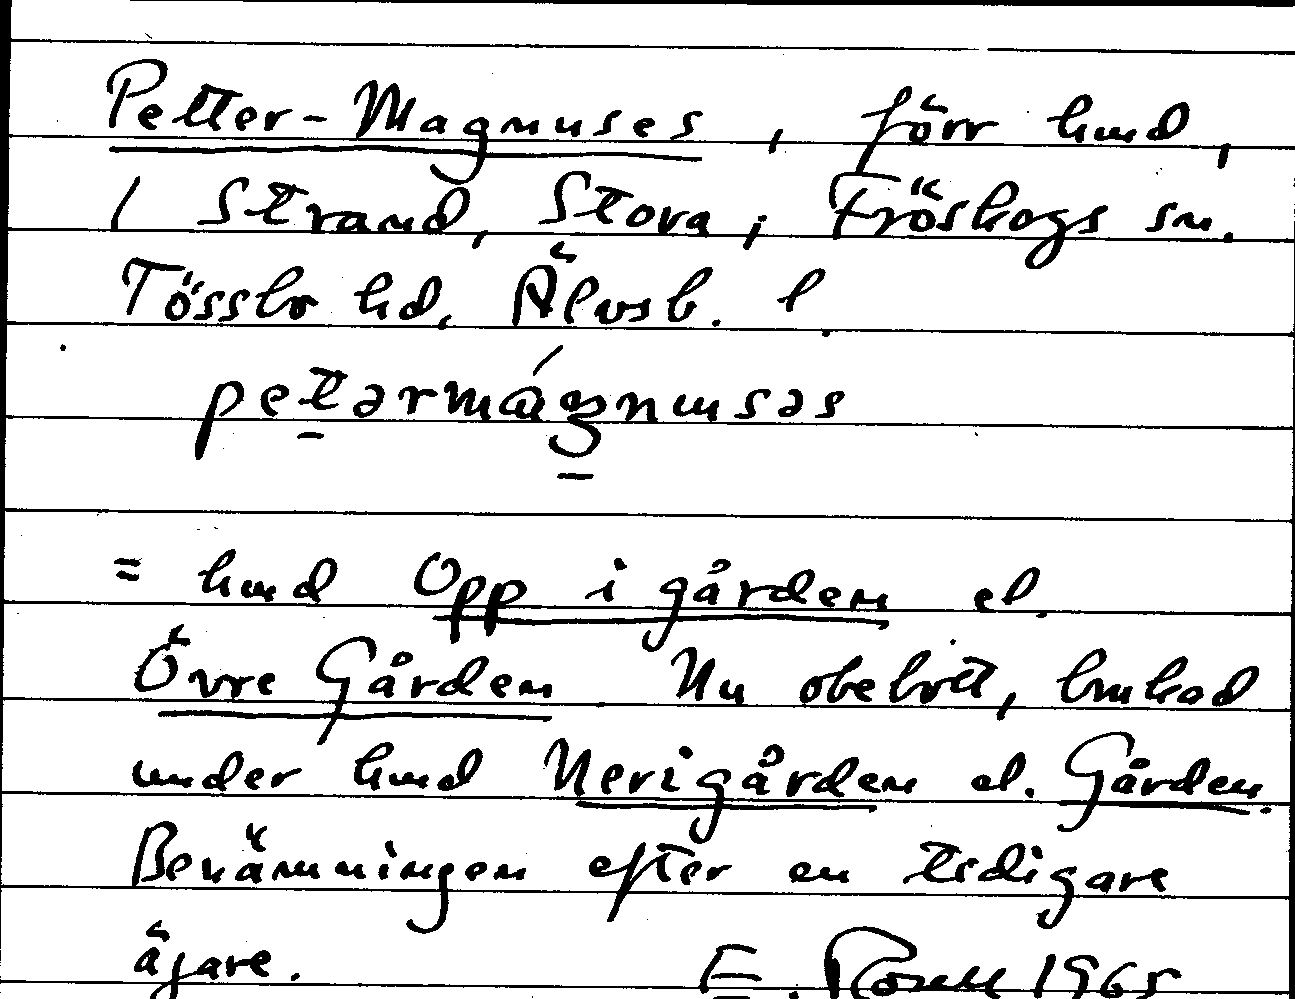 Petter-Magnuses, förr hmd,
i Strand, Stora, i Fröskogs sn.
Tössbo hd, Älvsb. l.
petərmágnusəs
= hmd Opp i gården el.
Övre Gården Nu obebott, brukad
under hmd Nerigården el. Gården.
Benämningen efter en tidigare
ägare. E. Rosell 1965